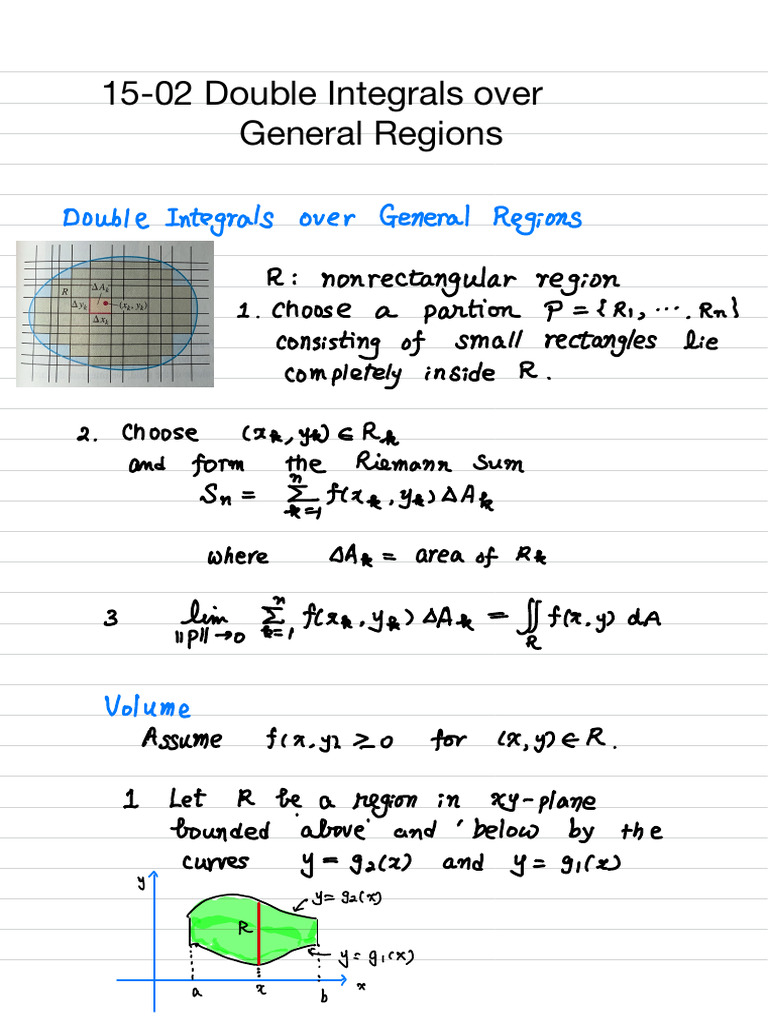 15-02 Double Integrals over
General Regions
Double Integrals over General Regions
R
ΔA_k
Δy_k
(x_k, y_k)
Δx_k
R: nonrectangular region
1. Choose a partion P = {R_1, ⋯. R_n}
consisting of small rectangles lie
completely inside R.
2. Choose (x_k, y_k) ∈ R_k
and form the Riemann Sum
S_n = ∑_{k=1}^{n} f(x_k, y_k) ΔA_k
where ΔA_k = area of R_k
3 lim_{||P||→0} ∑_{k=1}^{n} f(x_k, y_k) ΔA_k = ∬_R f(x, y) dA
Volume
Assume f(x, y) ≥ 0 for (x, y) ∈ R.
1 Let R be a region in xy-plane
bounded 'above' and 'below by the
curves y = g_2(x) and y = g_1(x)
y
y = g_2(x)
R
y = g_1(x)
a x b x